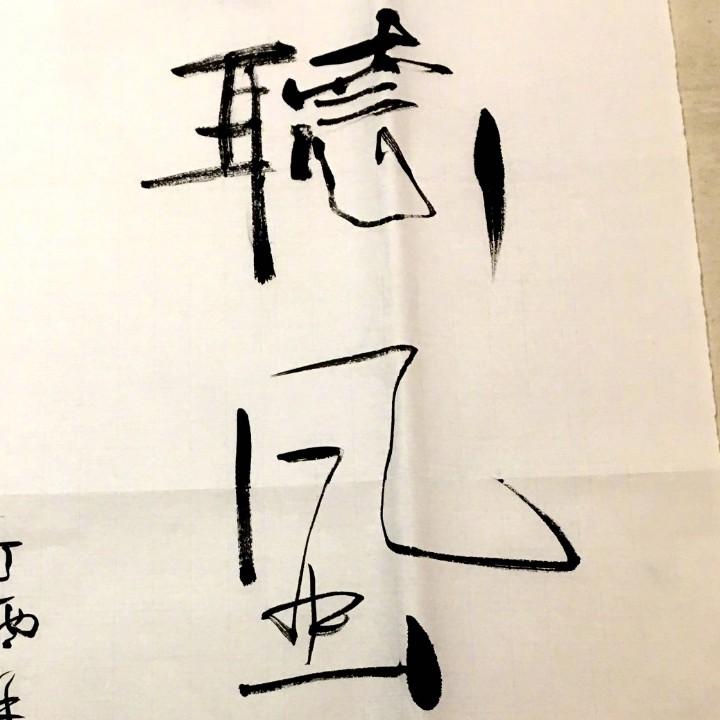 聽風
丁酉年